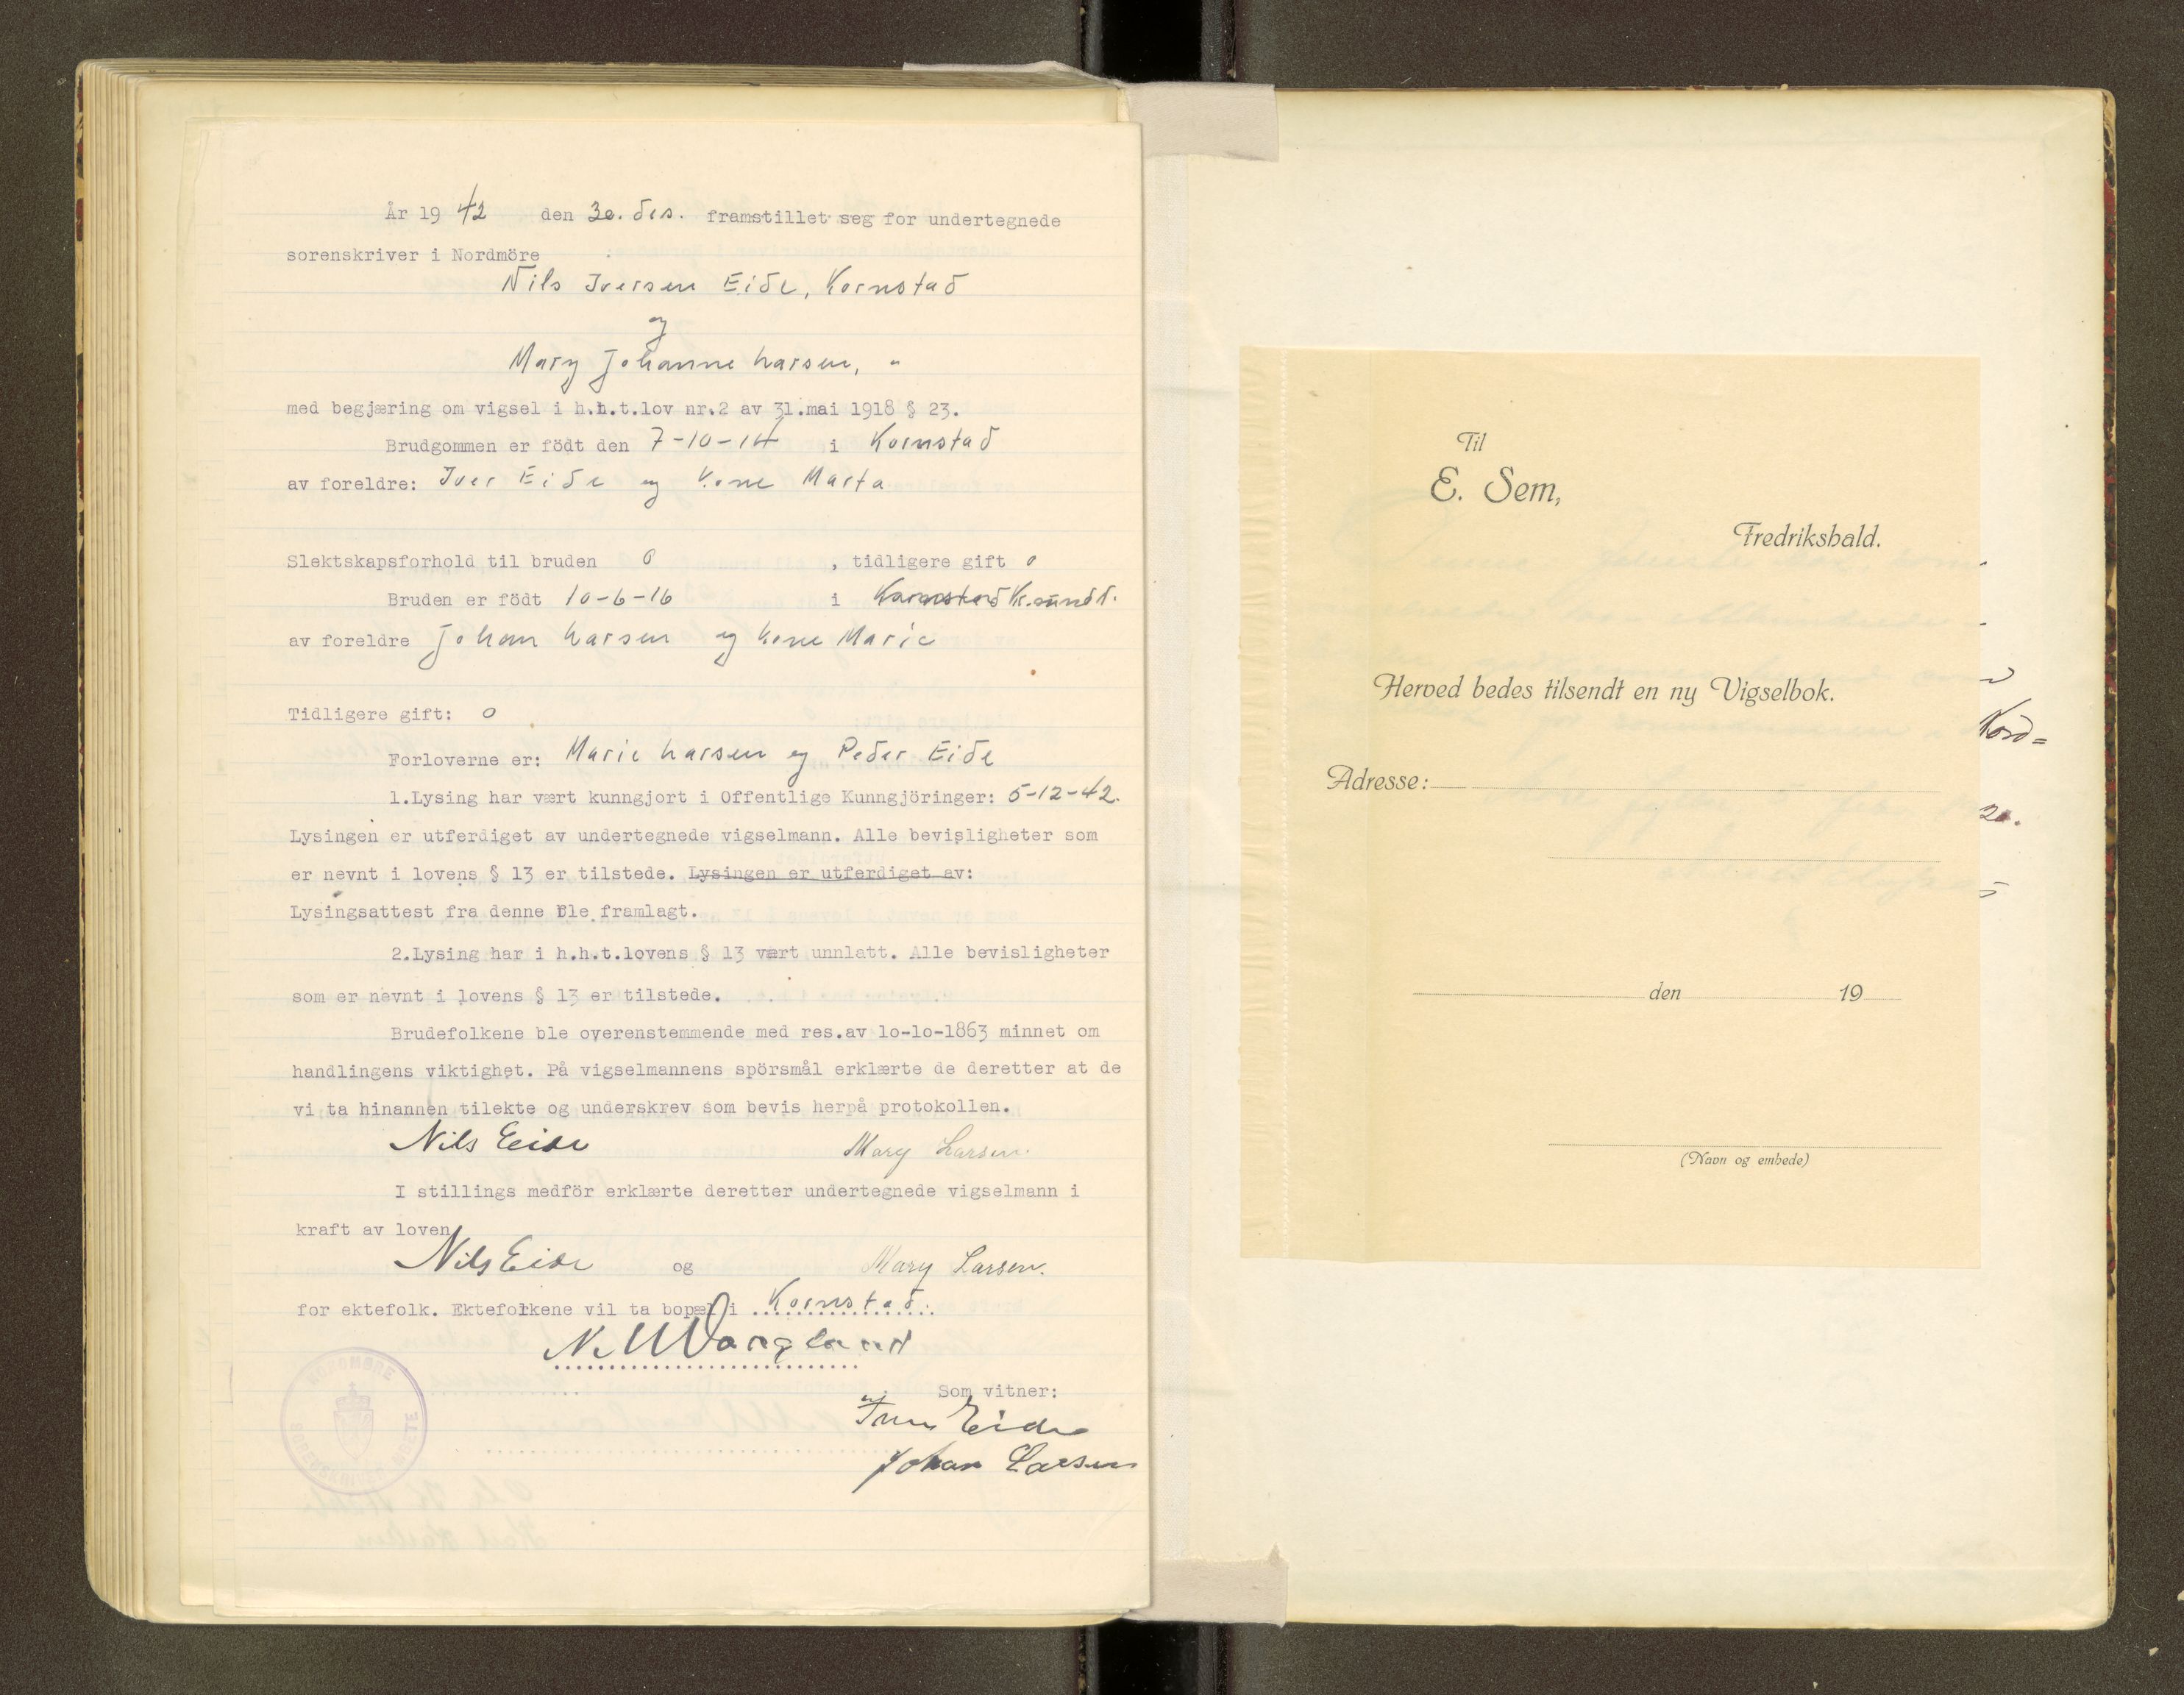 År 19 42 den 30. des. framstillet seg for undertegnede
sorenskriver i Nordmöre
Nils Iversen Eide, Kornstad
og
Mary Johanne Larsen, "
med begjæring om vigsel i h.h.t.lov nr.2 av 31.mai 1918 § 23.
Brudgommen er födt den 7-10-14 i Kornstad
av foreldre: Iver Eide og kone Marta
Slektskapsforhold til bruden 0 , tidligere gift 0
Bruden er födt 10-6-16 i Kornstad Kr.sund N.
av foreldre Johan Larsen og kone Marie
Tidligere gift: 0
Forloverne er: Marie Larsen og Peder Eide
1.Lysing har vært kunngjort i Offentlige Kunngjöringer: 5-12-42.
Lysingen er utferdiget av undertegnede vigselmann. Alle bevisligheter som
er nevnt i lovens § 13 er tilstede. Lysingen er utferdiget av:
Lysingsattest fra denne ble framlagt.
2.Lysing har i h.h.t.lovens § 13 vært unnlatt. Alle bevisligheter
som er nevnt i lovens § 13 er tilstede.
Brudefolkene ble overenstemmende med res.av lo-lo-1863 minnet om
handlingens viktighet. På vigselmannens spörsmål erklærte de deretter at de
vi ta hinannen tilekte og underskrev som bevis herpå protokollen.
Nils Eide Mary Larsen.
I stillings medför erklærte deretter undertegnede vigselmann i
kraft av loven
Nils Eide og Mary Larsen.
for ektefolk. Ektefolkene vil ta bopæl i Kornstad.
Som vitner:
Iver Eide
Johan Larsen
NORDMØRE
SORENSKRIVEREMBETE
Til
E. Sem,
Fredrikshald.
Herved bedes tilsendt en ny Vigselbok.
Nord=
Adresse:
20.
den 19
(Navn og embede)